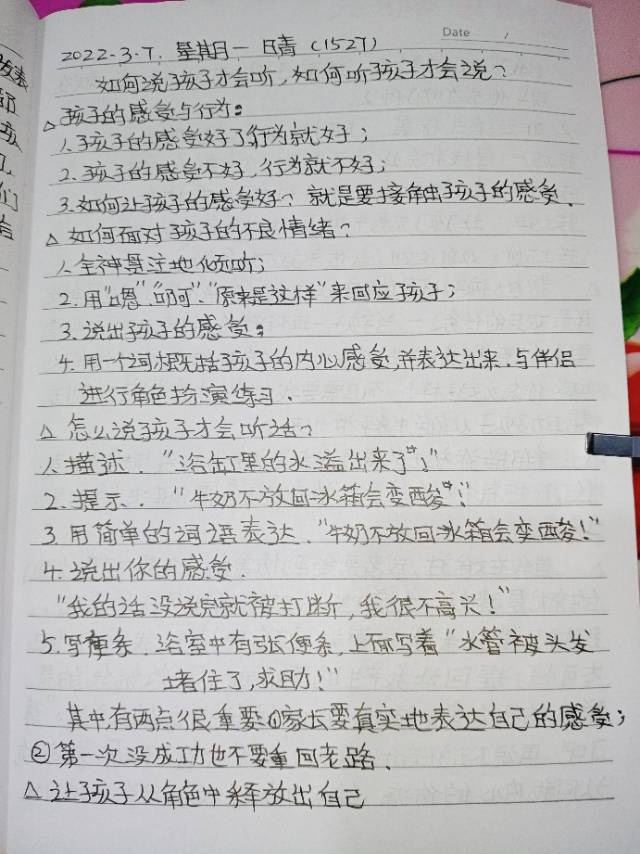 Date /
2022.3.7. 星期一 日青 (1527)
如何说孩子才会听,如何听孩子才会说?
△孩子的感受与行为:
1.孩子的感受好了行为就好;
2.孩子的感受不好,行为就不好;
3.如何让孩子的感受好? 就是要接触孩子的感受.
△如何面对孩子的不良情绪?
1.全神贯注地倾听;
2.用“嗯”“啊”、“原来是这样”来回应孩子;
3.说出孩子的感受;
4.用一个词概括孩子的内心感受,并表达出来.与伴侣
进行角色扮演练习.
△怎么说孩子才会听话?
1.描述.“浴缸里的水溢出来了”
2.提示.“牛奶不放回冰箱会变酸”!
3.用简单的词语表达.“牛奶不放回冰箱会变酸!”
4.说出你的感受.
“我的话没说完就被打断,我很不高兴!”
5.写便条.浴室中有张便条,上面写着“水管被头发
堵住了,求助!”
其中有两点很重要:①家长要真实地表达自己的感受;
②第一次没成功也不要重回老路.
△让孩子从角色中释放出自己